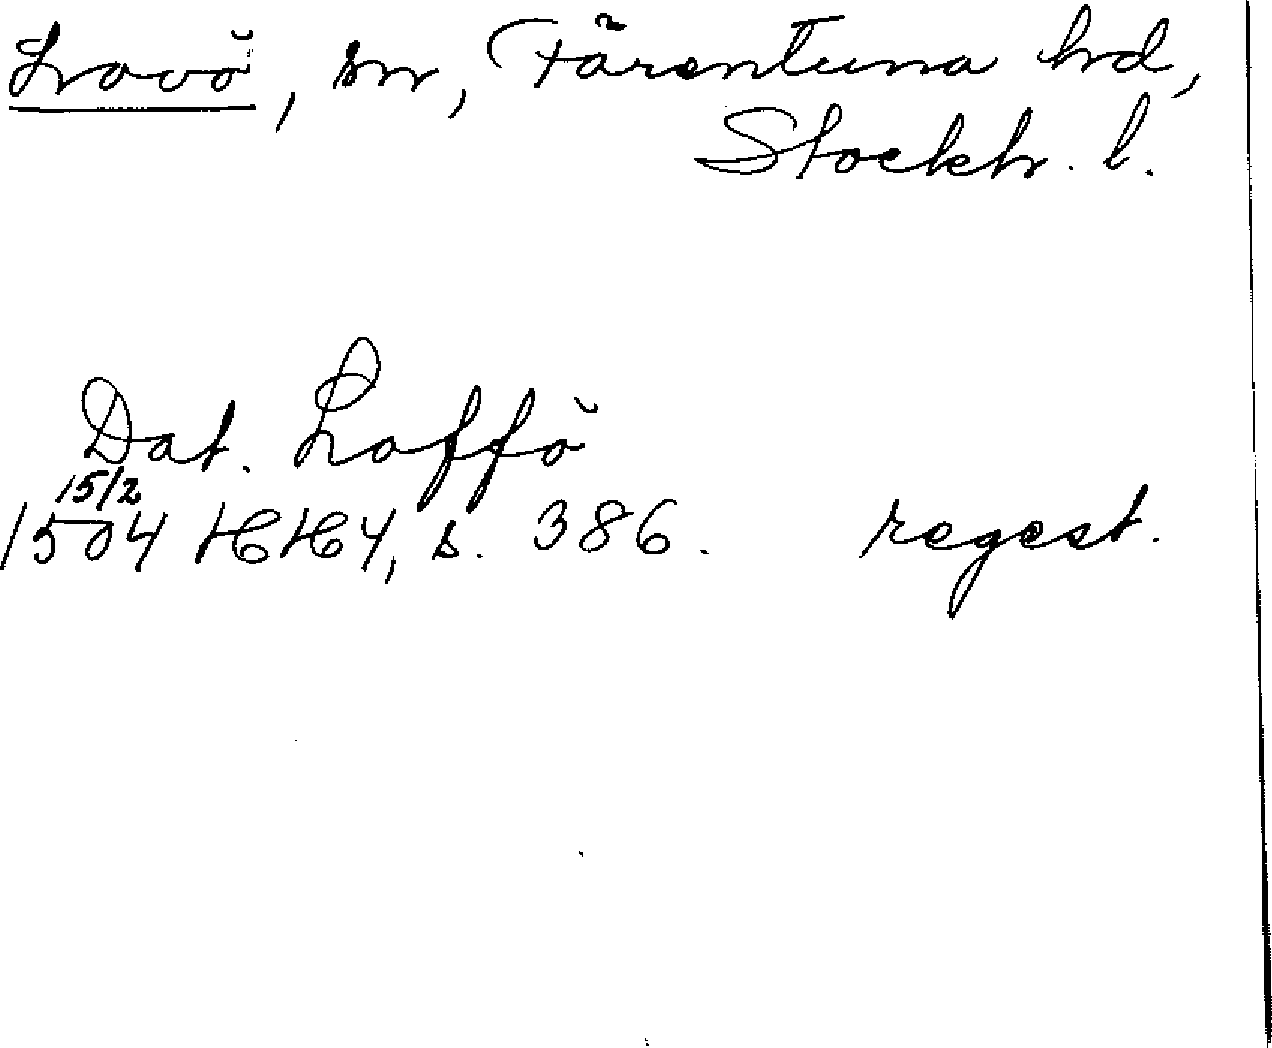 Lovö, sn, Färentuna hrd,
Stockh. l.
Dat. Loffö
15/2
1504 HH 4, s. 386. regest.